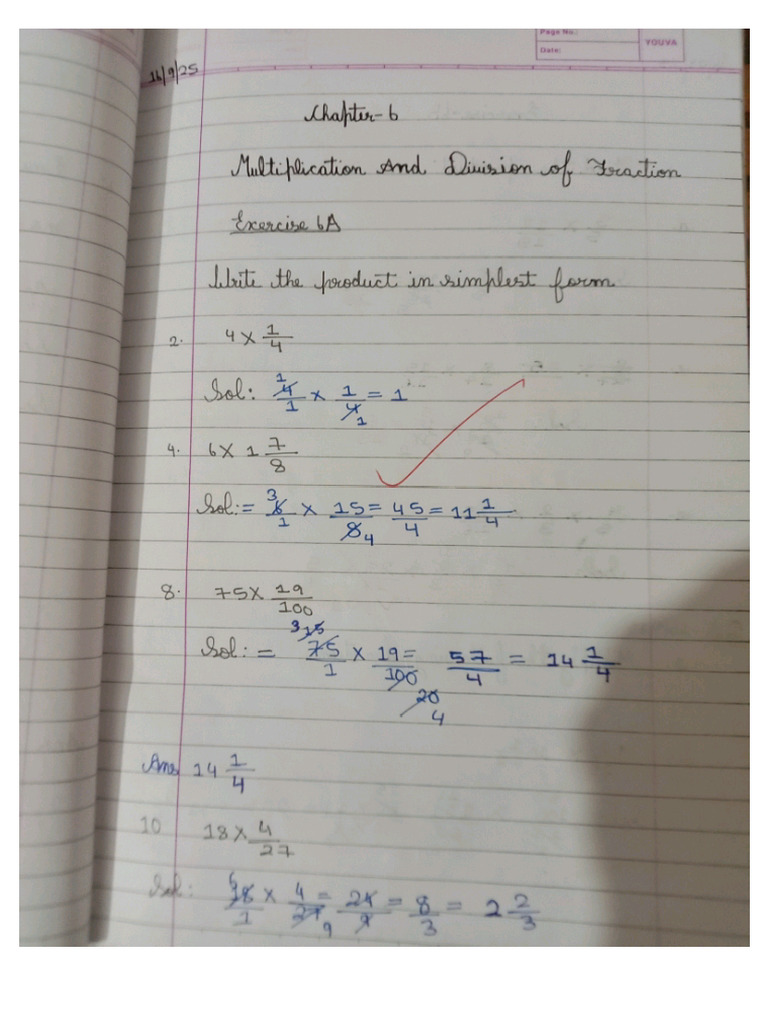 Page No.:
Date:
YOUVA
16/9/25
Chapter-6
Multiplication And Division of Fraction
Exercise 6A
Write the product in simplest form
2. 4 × 1/4
Sol: 4/1 × 1/4 = 1
4. 6 × 1 7/8
Sol: = 6/1 × 15/8 = 45/4 = 11 1/4
8. 75 × 19/100
Sol: = 75/1 × 19/100 = 57/4 = 14 1/4
Ans 14 1/4
10 18 × 4/27
Sol: 18/1 × 4/27 = 24/9 = 8/3 = 2 2/3